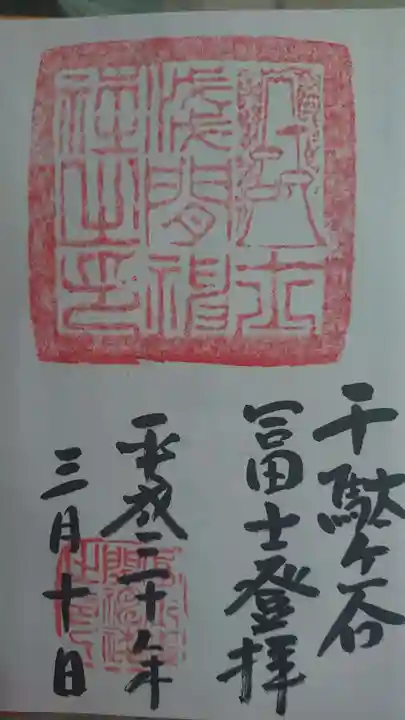 富士
浅間神
社之印
千駄ヶ谷
冨士登拝
平成三十年
三月十日